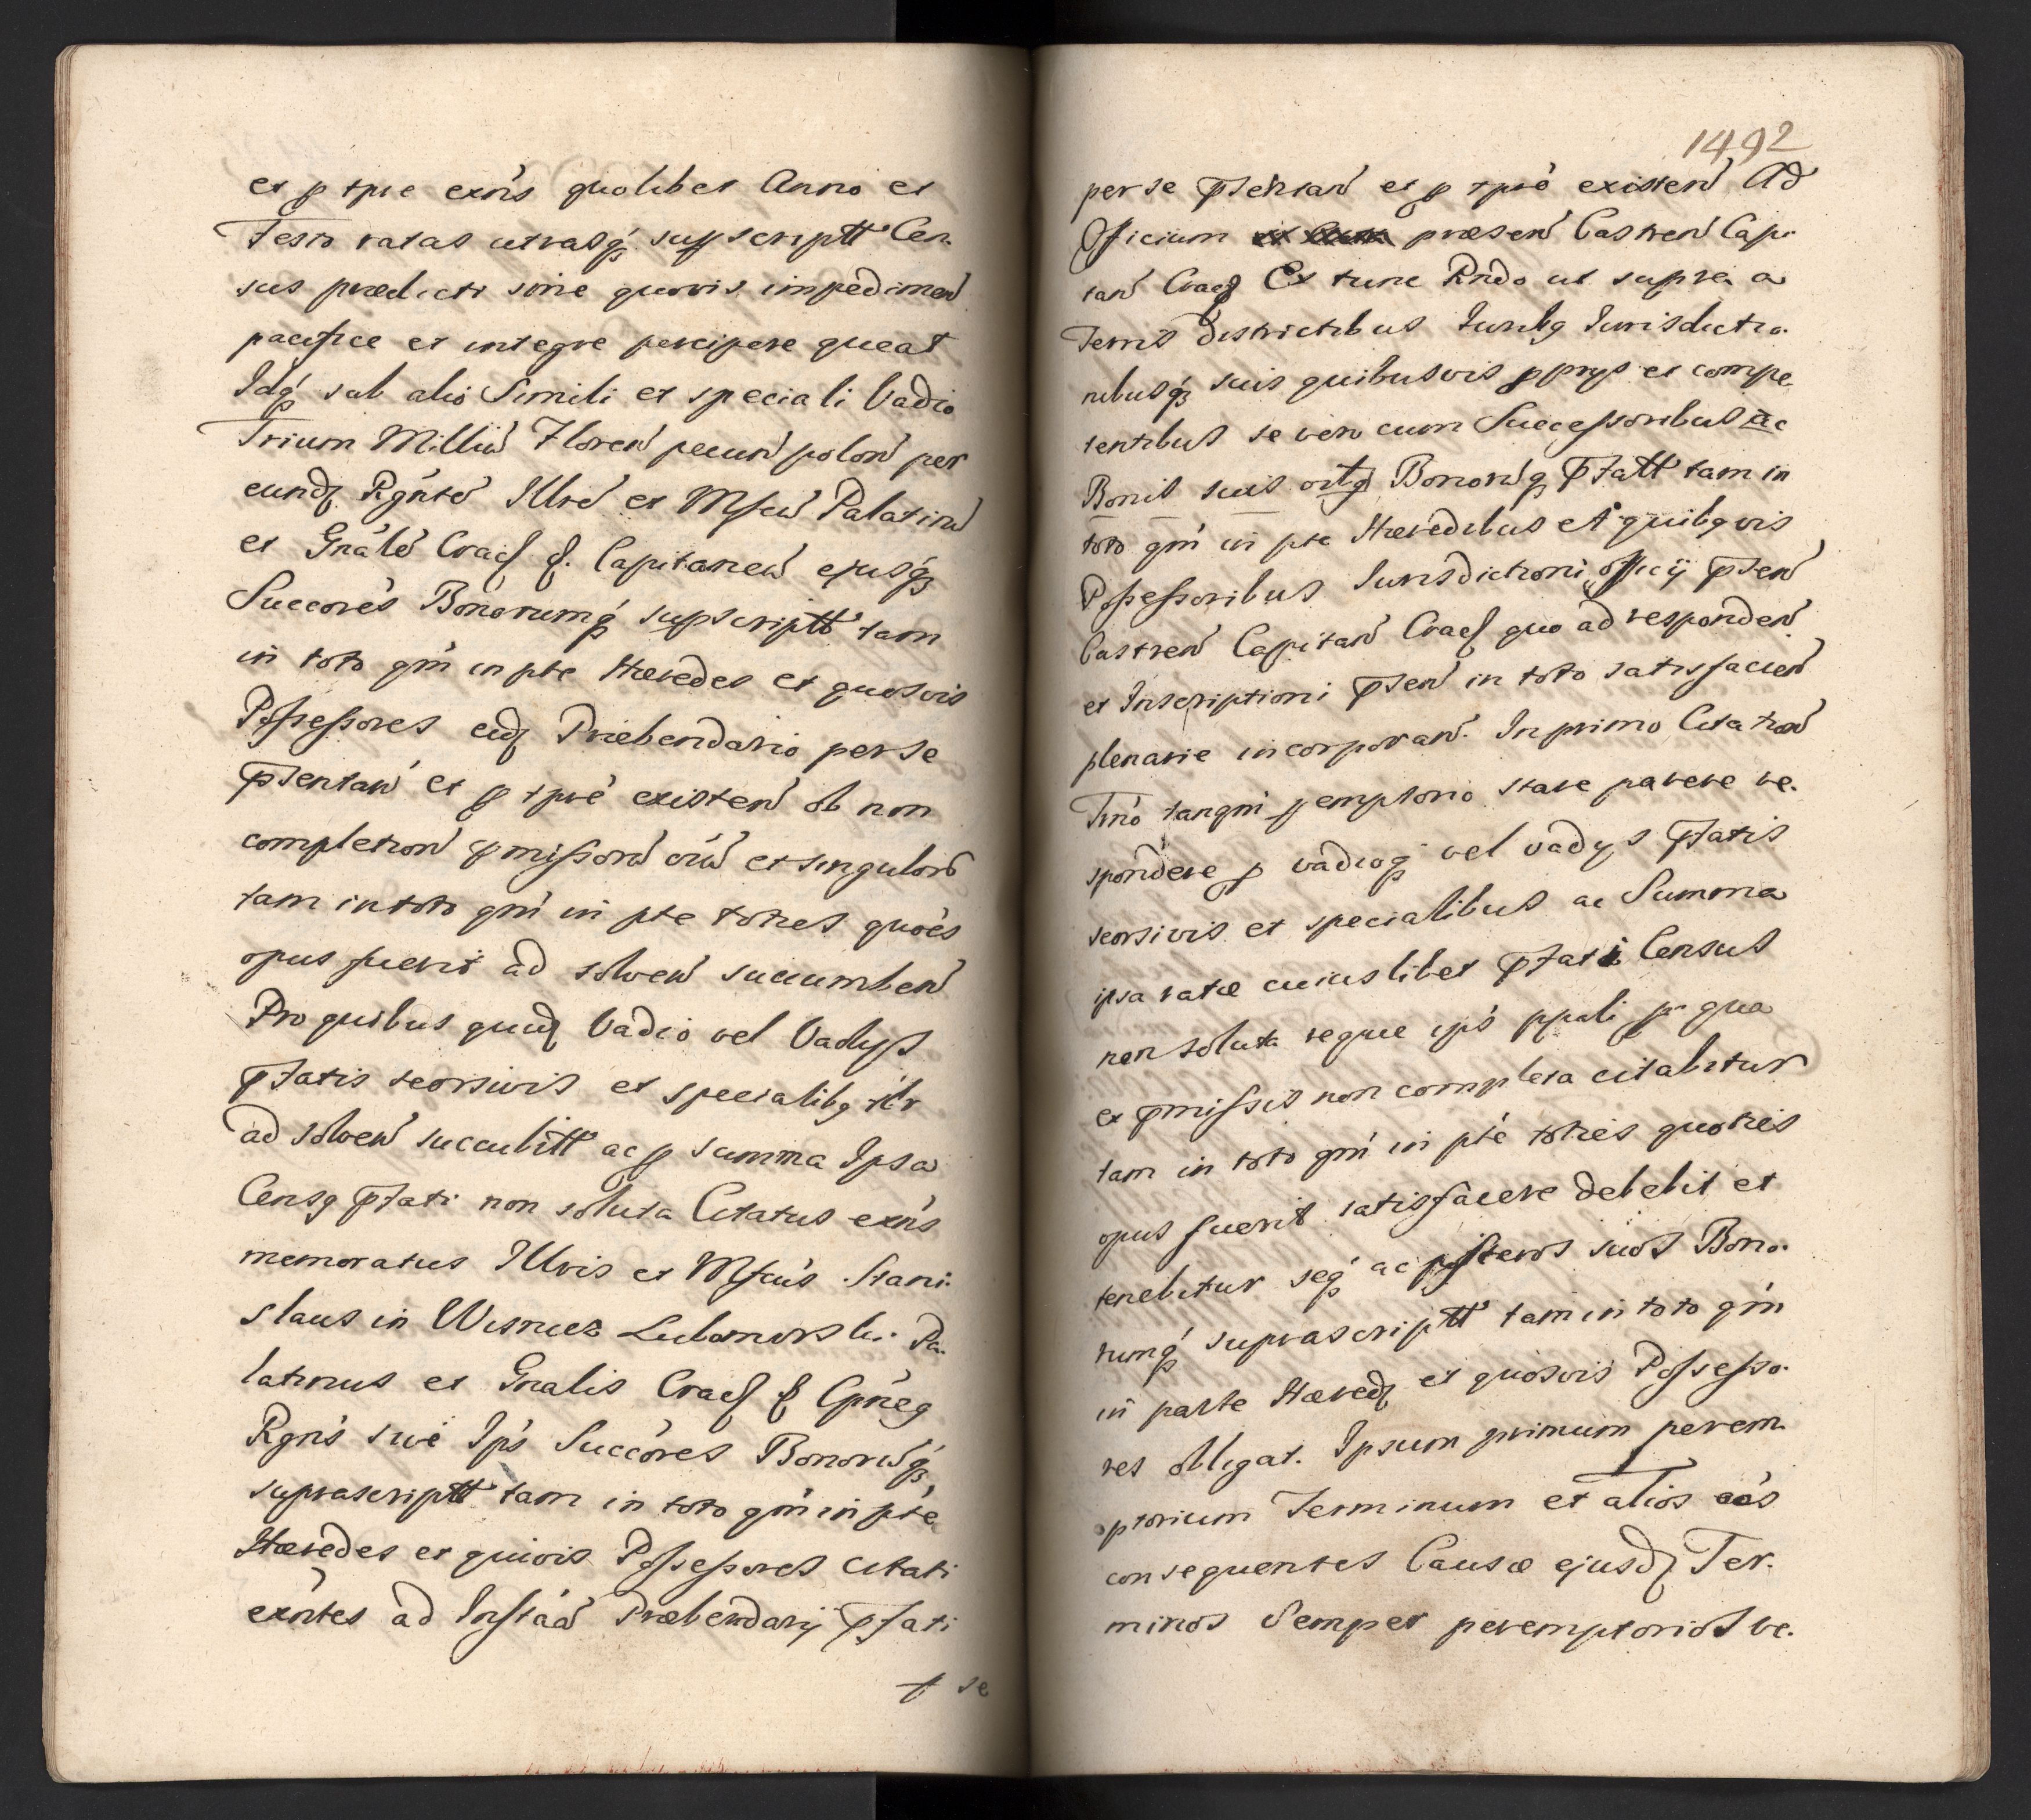 et p tpre exns quolibet Anno et
Festo ratas utrasq suprscriptt Cen
sus praedicti sine quovis impedimen
pacifice et integre percipere queat
Idq sub alio Simili et speciali Vadio
Trium Milliu Floren pecun polon per
eund Rgnte Illre et Mfcu Palatinu
et Gnale Crac f. Capitaneu ejusq
Succores Bonorumq supscriptt tam
in toto qm in pte Hæredes et quosvis
Possessores eid Præbendario per se
psentan et p tpre existen ob non
completion pmissoru oiu et singuloru
tam in toto qm in pte toties quoes
opus fuerit ad solven succumben
Pro quibus quid Vadio vel Vadys
pfatis seorsivis et specialibq
ad solven succubitt ac p summa Ipsa
Censq pfati non soluta Citatus exns
memoratus Illris et Mfcus Stani-
slaus in Wisnicz Lubomirski Pa-
latinus et Gnalis Crac f Cpneq
Rgns sive Ips Succores Bonoruq
suprascriptt tam in toto qm in pte
Hæredes et quivis Possessores citati
exntes ad Instaa Præbendarij pfati
se
1492
per se psentan et p tpre existen Ad
Officium præsen Castren Capi-
tan Crac Ex tunc Rndo ut supra a
Terris districtibus Juribq Jurisdictio-
nibusq suis quibusvis pprys et compe
tentibus se vero cum Successoribus ac
Bonis suis Bonoruq pfatt tam in
toto qm in pte Hæredibus et quibqvis
Possessoribus Jurisdictioni officij psen
Castren Capitan Crac quo ad responden
et Inscriptioni psen in toto satisfacien
plenarie incorporan. In primo Citation
Tmo tanqm pemptorio stare parere re-
spondere p vadioq vel vadys pfatis
seorsivis et specialibus ac Summa
ipsa ratæ cuiuslibet pfati Census
non soluta reque ips ppali p qua
ex pmissis non completa citabitur
tam in toto qm in pte toties quoties
opus fuerit satisfacere debebit et
tenebitur seq ac posteros suos Bono-
rumq suprascriptt tam in toto qm
in parte Hæred et quosvis Possesso-
res obligat. Ipsum primum perem-
ptorium Terminum et alios oos
consequentes Causæ ejusd Ter-
minos Semper peremptorios re-